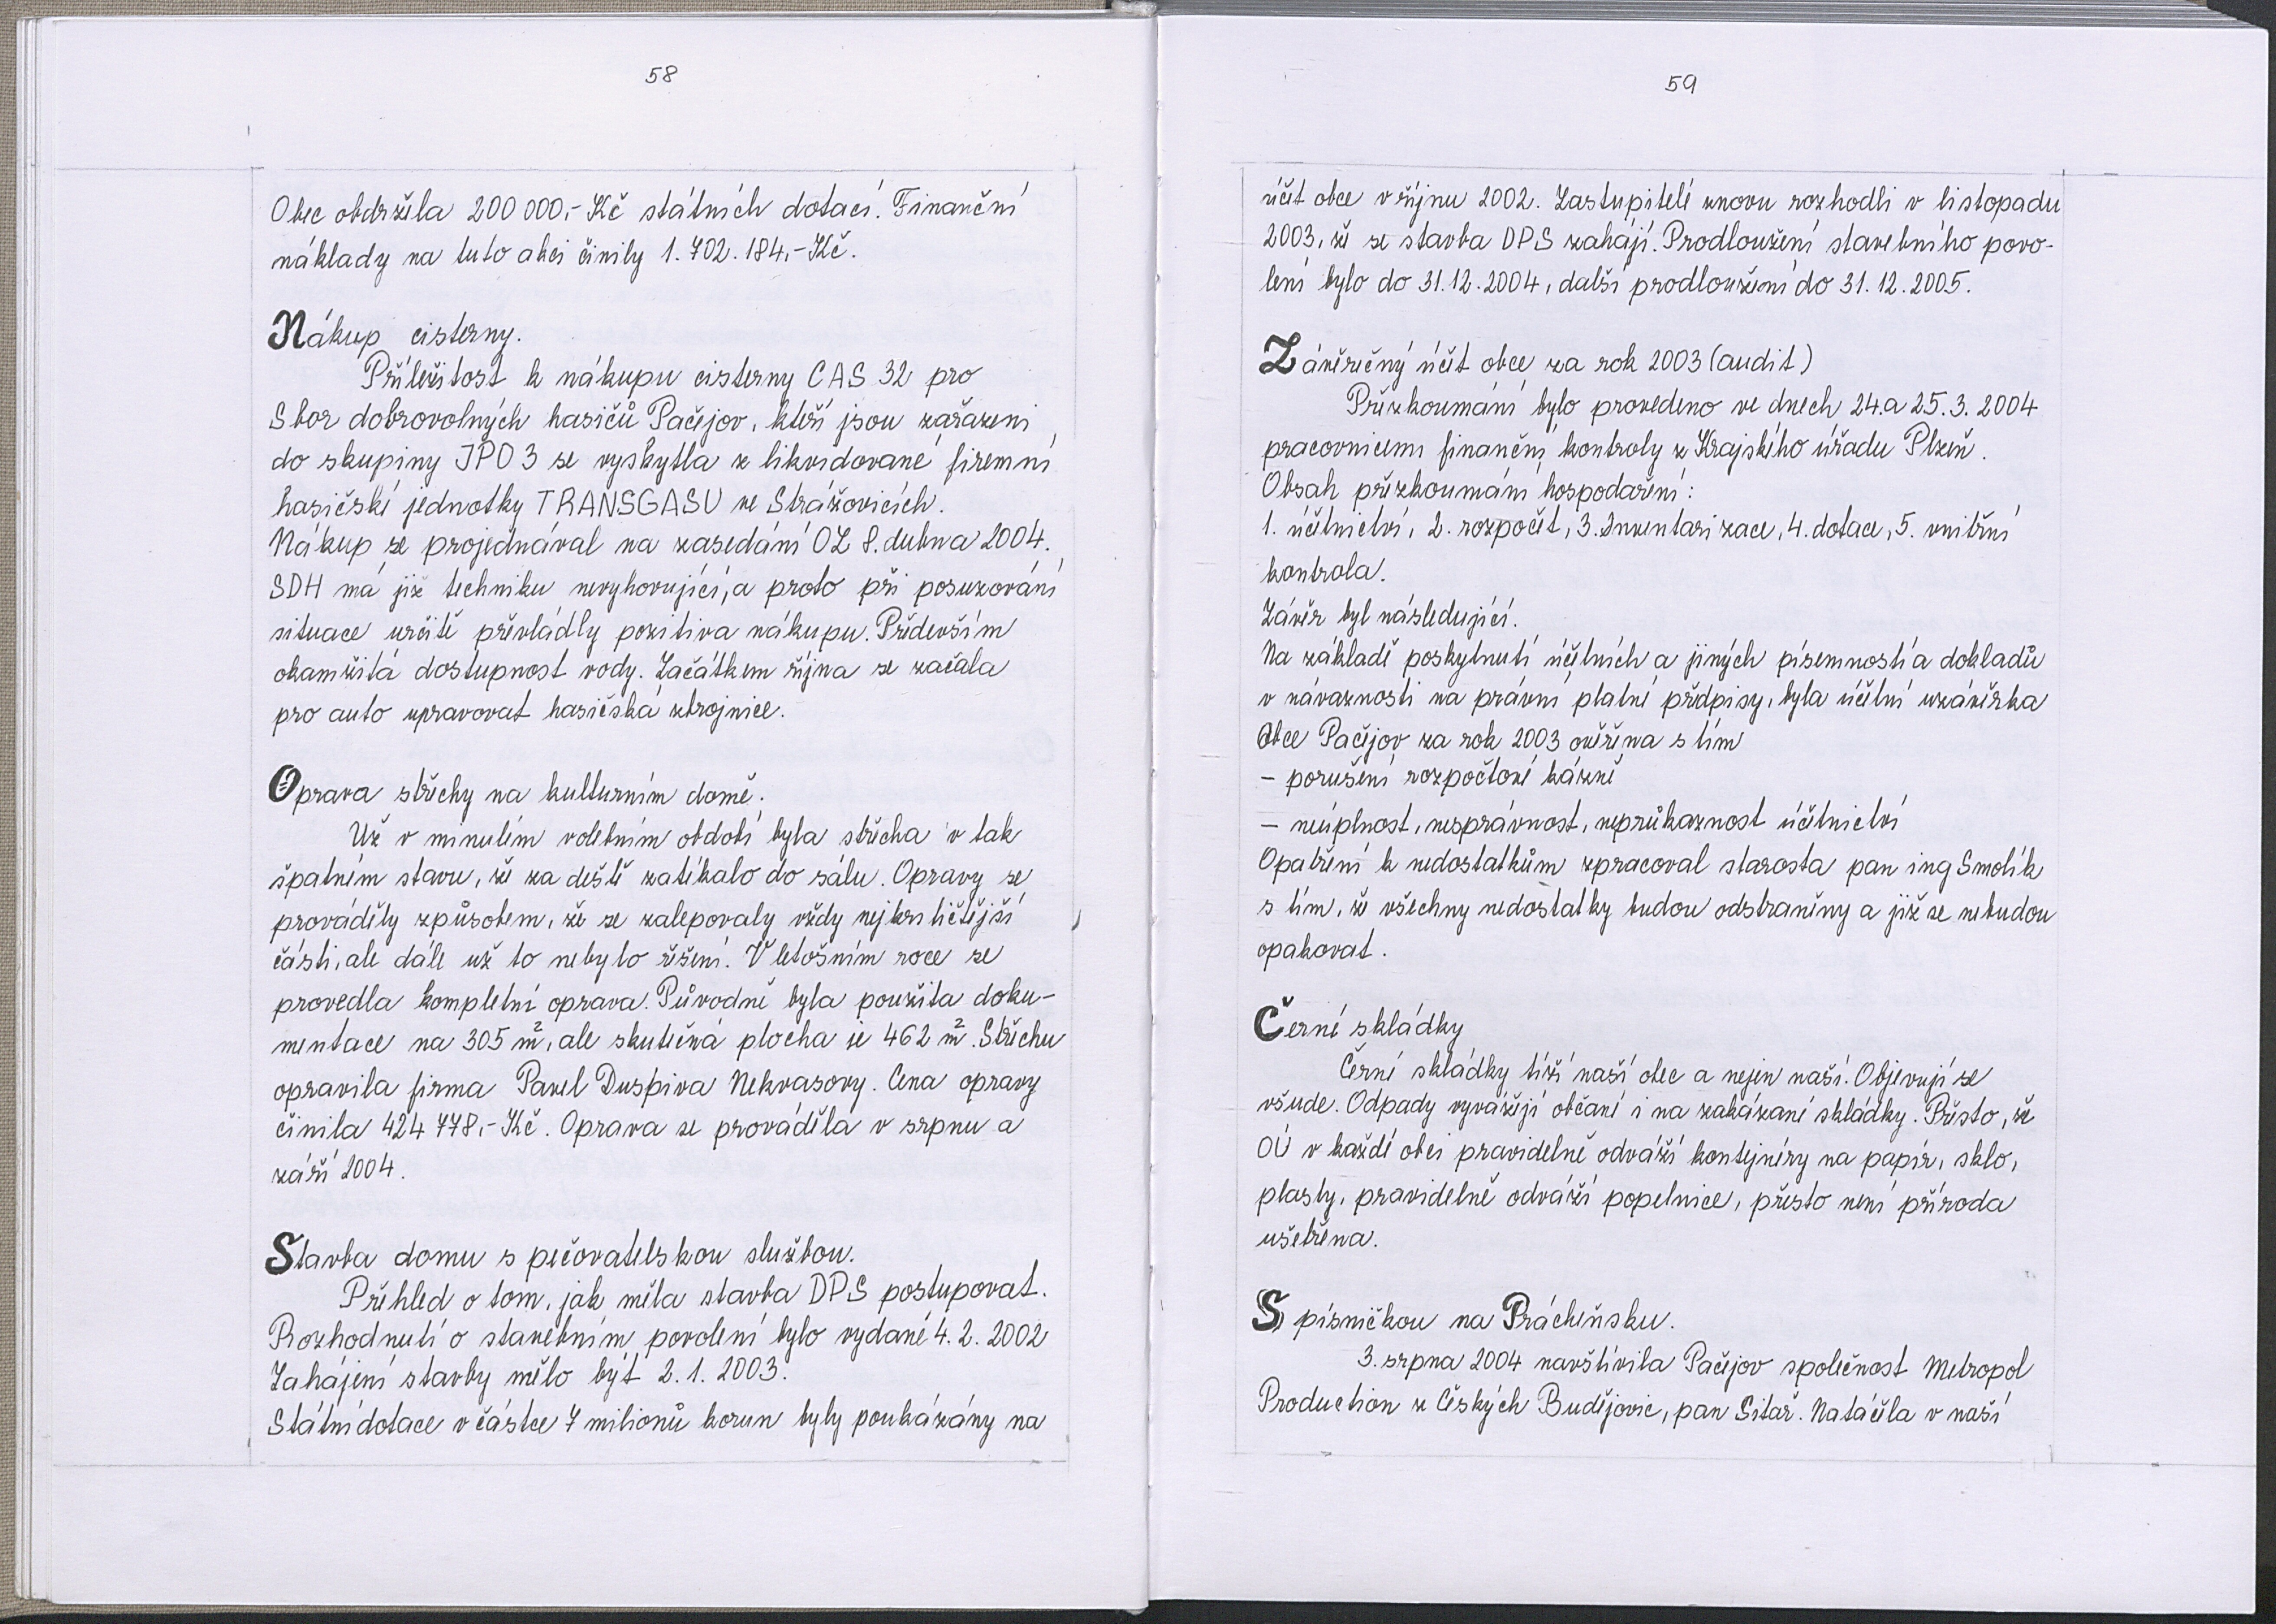 58
Obec obdržela 200 000,- Kč státních dotací. Finanční
náklady na tuto akci činily 1.702.184,- Kč.
Nákup cisterny.
Příležitost k nákupu cisterny CAS 32 pro
Sbor dobrovolných hasičů Pačejov, kteří jsou zařazeni
do skupiny JPO 3 se vyskytla z likvidované firemní
hasičské jednotky TRANSGASU ve Strážovicích.
Nákup se projednával na zasedání OZ 8. dubna 2004.
SDH má již techniku nevyhovující, a proto při posuzování
situace určitě převládly pozitiva nákupu. Především
okamžitá dostupnost vody. Začátkem října se začala
pro auto upravovat hasičská zbrojnice.
Oprava střechy na kulturním domě.
Už v minulém volebním období byla střecha v tak
špatném stavu, že za deště zatékalo do sálu. Opravy se
prováděly způsobem, že se zalepovaly vždy nejkritičtější
části, ale dále už to nebylo řešení. V letošním roce se
provedla kompletní oprava. Původně byla použita doku-
mentace na 305 m², ale skutečná plocha je 462 m². Střechu
opravila firma Pavel Duspiva Nekvasovy. Cena opravy
činila 424 778,- Kč. Oprava se prováděla v srpnu a
září 2004.
Stavba domu s pečovatelskou službou.
Přehled o tom, jak měla stavba DPS postupovat.
Rozhodnutí o stavebním povolení bylo vydané 4. 2. 2002
Zahájení stavby mělo být 2. 1. 2003.
Státní dotace v částce 7 milionů korun byly poukázány na
59
účet obce v říjnu 2002. Zastupitelé znovu rozhodli v listopadu
2003, že se stavba DPS zahájí. Prodloužení stavebního povo-
lení bylo do 31.12.2004, další prodloužení do 31.12.2005.
Závěrečný účet obce za rok 2003 (audit)
Přezkoumání bylo provedeno ve dnech 24. a 25. 3. 2004
pracovnicemi finanční kontroly z Krajského úřadu Plzeň.
Obsah přezkoumání hospodaření:
1. účetnictví, 2. rozpočet, 3. Inventarizace, 4. dotace, 5. vnitřní
kontrola.
Závěr byl následující.
Na základě poskytnutí účetních a jiných písemností a dokladů
v návaznosti na právní platné předpisy, byla účetní uzávěrka
Obce Pačejov za rok 2003 ověřena s tím
- porušení rozpočtové kázně
- neúplnost, nesprávnost, neprůkaznost účetnictví
Opatření k nedostatkům zpracoval starosta pan ing Smolík
s tím, že všechny nedostatky budou odstraněny a již se nebudou
opakovat.
Černé skládky
Černé skládky tíží naší obec a nejen naší. Objevují se
všude. Odpady vyvážejí občané i na zakázané skládky. Přesto, že
OÚ v každé obci pravidelně odváží kontejnéry na papír, sklo,
plasty, pravidelně odváží popelnice, přesto není příroda
ušetřena.
S písničkou na Prácheňsku.
3. srpna 2004 navštívila Pačejov společnost Metropol
Production z Českých Budějovic, pan Sitař. Natáčela v naší